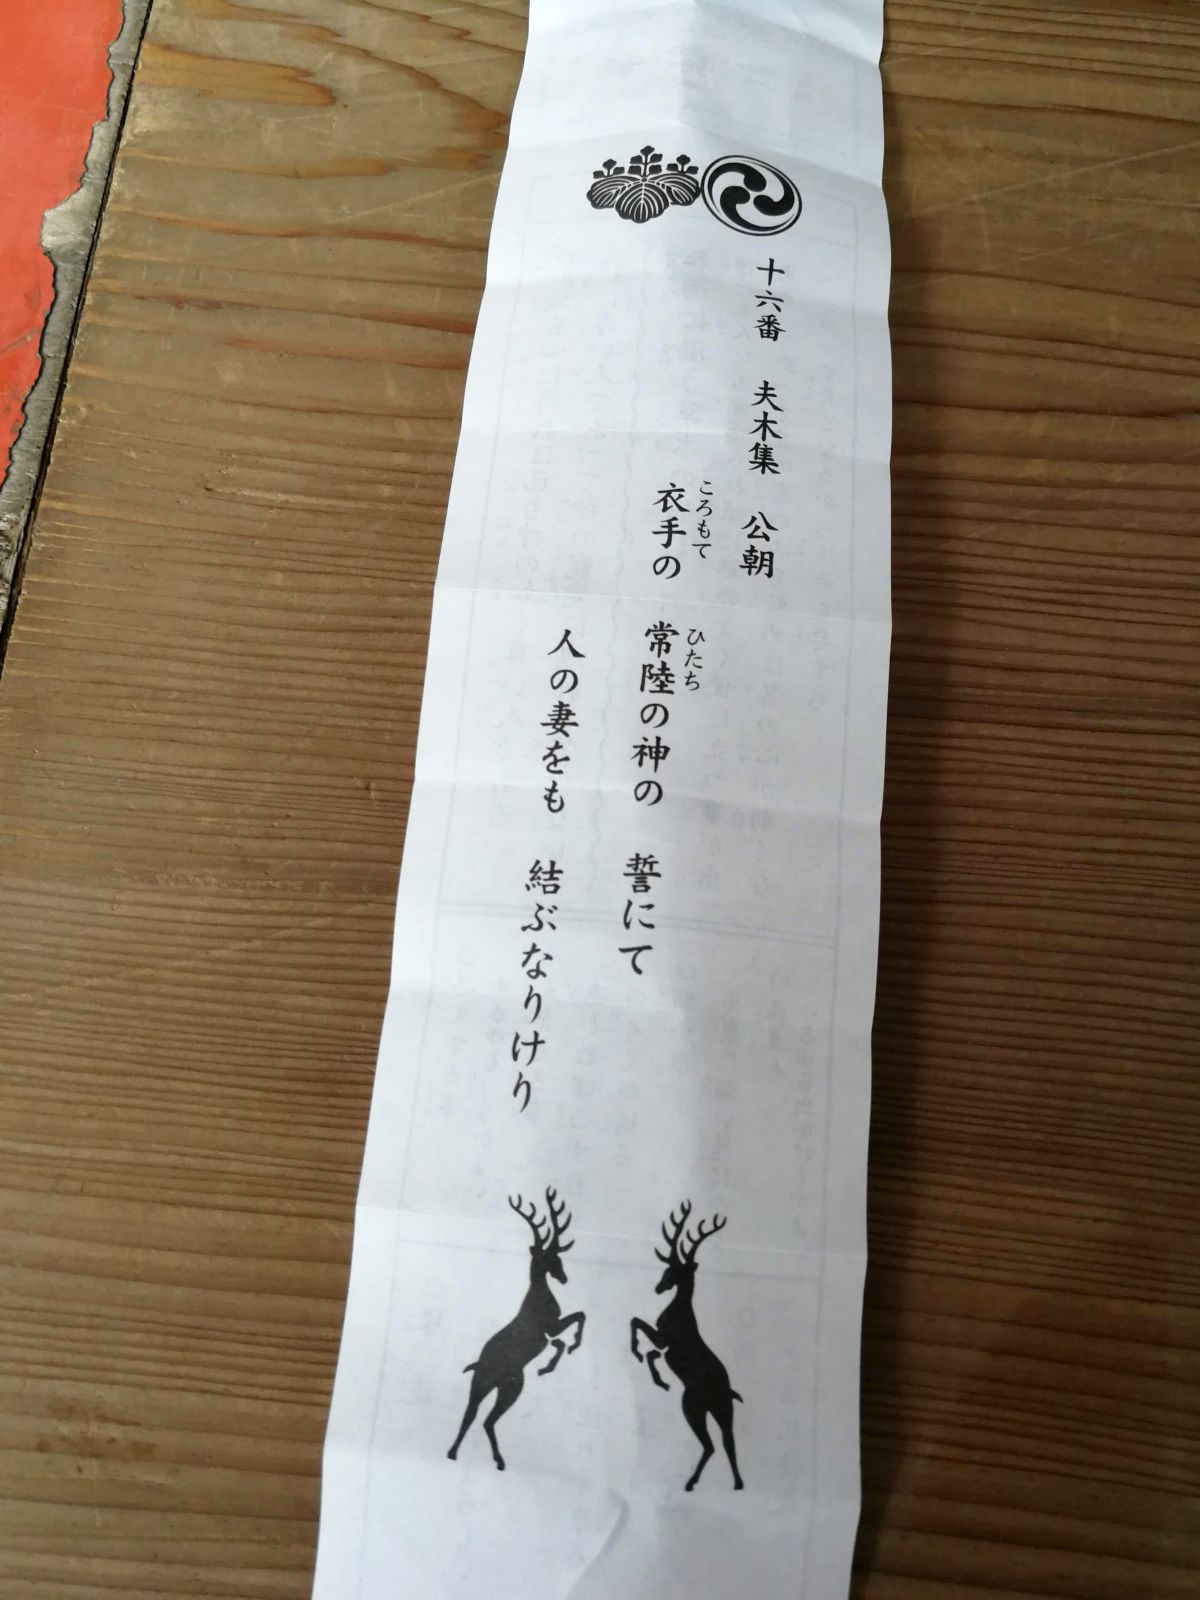 十六番　夫木集　公朝
衣手の　常陸の神の　誓にて
ころもて
ひたち
人の妻をも　結ぶなりけり